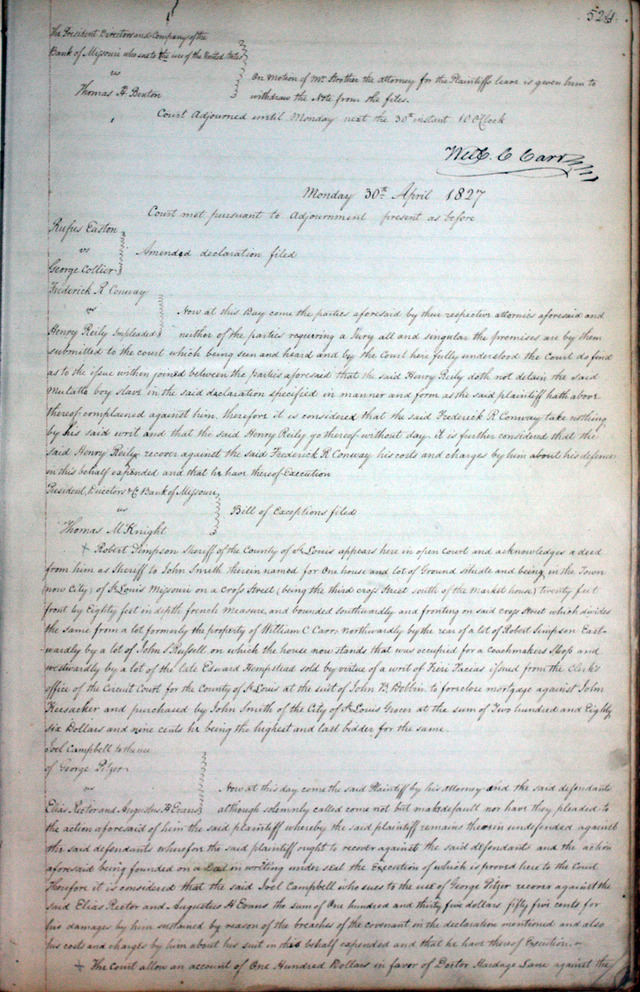 524
The President Directors and Company of the
Bank of Missouri who sue to the use of the United States
vs
Thomas H Benton
On motion of Mr Strother the attorney for the Plaintiffs leave is given him to
withdraw the Note from the files.
Court Adjourned until Monday next the 30th instant 10 O'Clock
Will C Carr
Monday 30th April 1827
Court met pursuant to Adjournment present as before
Rufus Easton
vs
George Collier
Amended declaration filed
Frederick R Conway
vs
Henry Reily Impleaded
Now at this Day come the parties aforesaid by their respective attornies aforesaid and
neither of the parties requiring a Jury all and singular the premises are by them
submitted to the court which being seen and heard and by the Court here fully understood the Court do find
as to the issue within joined between the parties aforesaid that the said Henry Reily doth not detain the said
Mulatto boy slave in the said declaration specified in manner and form as the said plaintiff hath above
thereof complained against him, therefore it is considered that the said Frederick R. Conway take nothing
by his said writ and that the said Henry Reily go thereof without day. it is further considered that the
said Henry Reily recover against the said Frederick R Conway his costs and charges by him about his defence
in this behalf expended and that he have thereof Execution
President, Directors &C Bank of Missouri
vs
Thomas McKnight
Bill of Exceptions filed
+ Robert Simpson Sheriff of the County of St Louis appears here in open court and acknowledges a deed
from him as Sheriff to John Smith therein named for One house and lot of Ground situate and being in the Town
(now City) of St Louis Missouri on a cross Street (being the third cross Street south of the Market house) twenty feet
front by Eighty feet in depth french measure, and bounded southwardly and fronting on said cross street which divides
the same from a lot formerly the property of William C Carr. northwardly by the rear of a lot of Robert Simpson East-
wardly by a lot of John S Russell on which the house now stands that was occupied for a Coachmakers Shop and
westwardly by a lot of the late Edward Hempstead sold by virtue of a writ of Fieri Facias issued from the clerks
office of the Circuit Court for the County of St Louis at the suit of John B. to foreclose mortgage against John
and purchased by John Smith of the City of St Louis Grocer at the sum of Two hundred and Eighty
six Dollars and none cents he being the highest and last bidder for the same.
Joel Campbell to the use
of George Pitzer
vs
Elias Rector and Augustus H Evans
Now at this day come the said Plaintiff by his Attorney and the said defendants
although solemnly called come not but make default nor have they pleaded to
the action aforesaid of him the said plaintiff whereby the said plaintiff remains therein undefended against
the said defendants wherefor the said plaintiff ought to recover against the said defendants and the action
aforesaid being founded on a Deed in writing under seal the Execution of which is proved here to the Court
Therefore it is considered that the said Joel Campbell who sues to the use of George Pitzer recover against the
said Elias Rector and Augustus H Evans the sum of One hundred and thirty five dollars fifty five cents for
his damages by him sustained by reason of the breaches of the covenant in the declaration mentioned and also
his costs and charges by him about his suit in this behalf expended and that he have thereof Execution.
+ The Court allow an account of One Hundred Dollars in favor of Doctor Hardage Lane against the